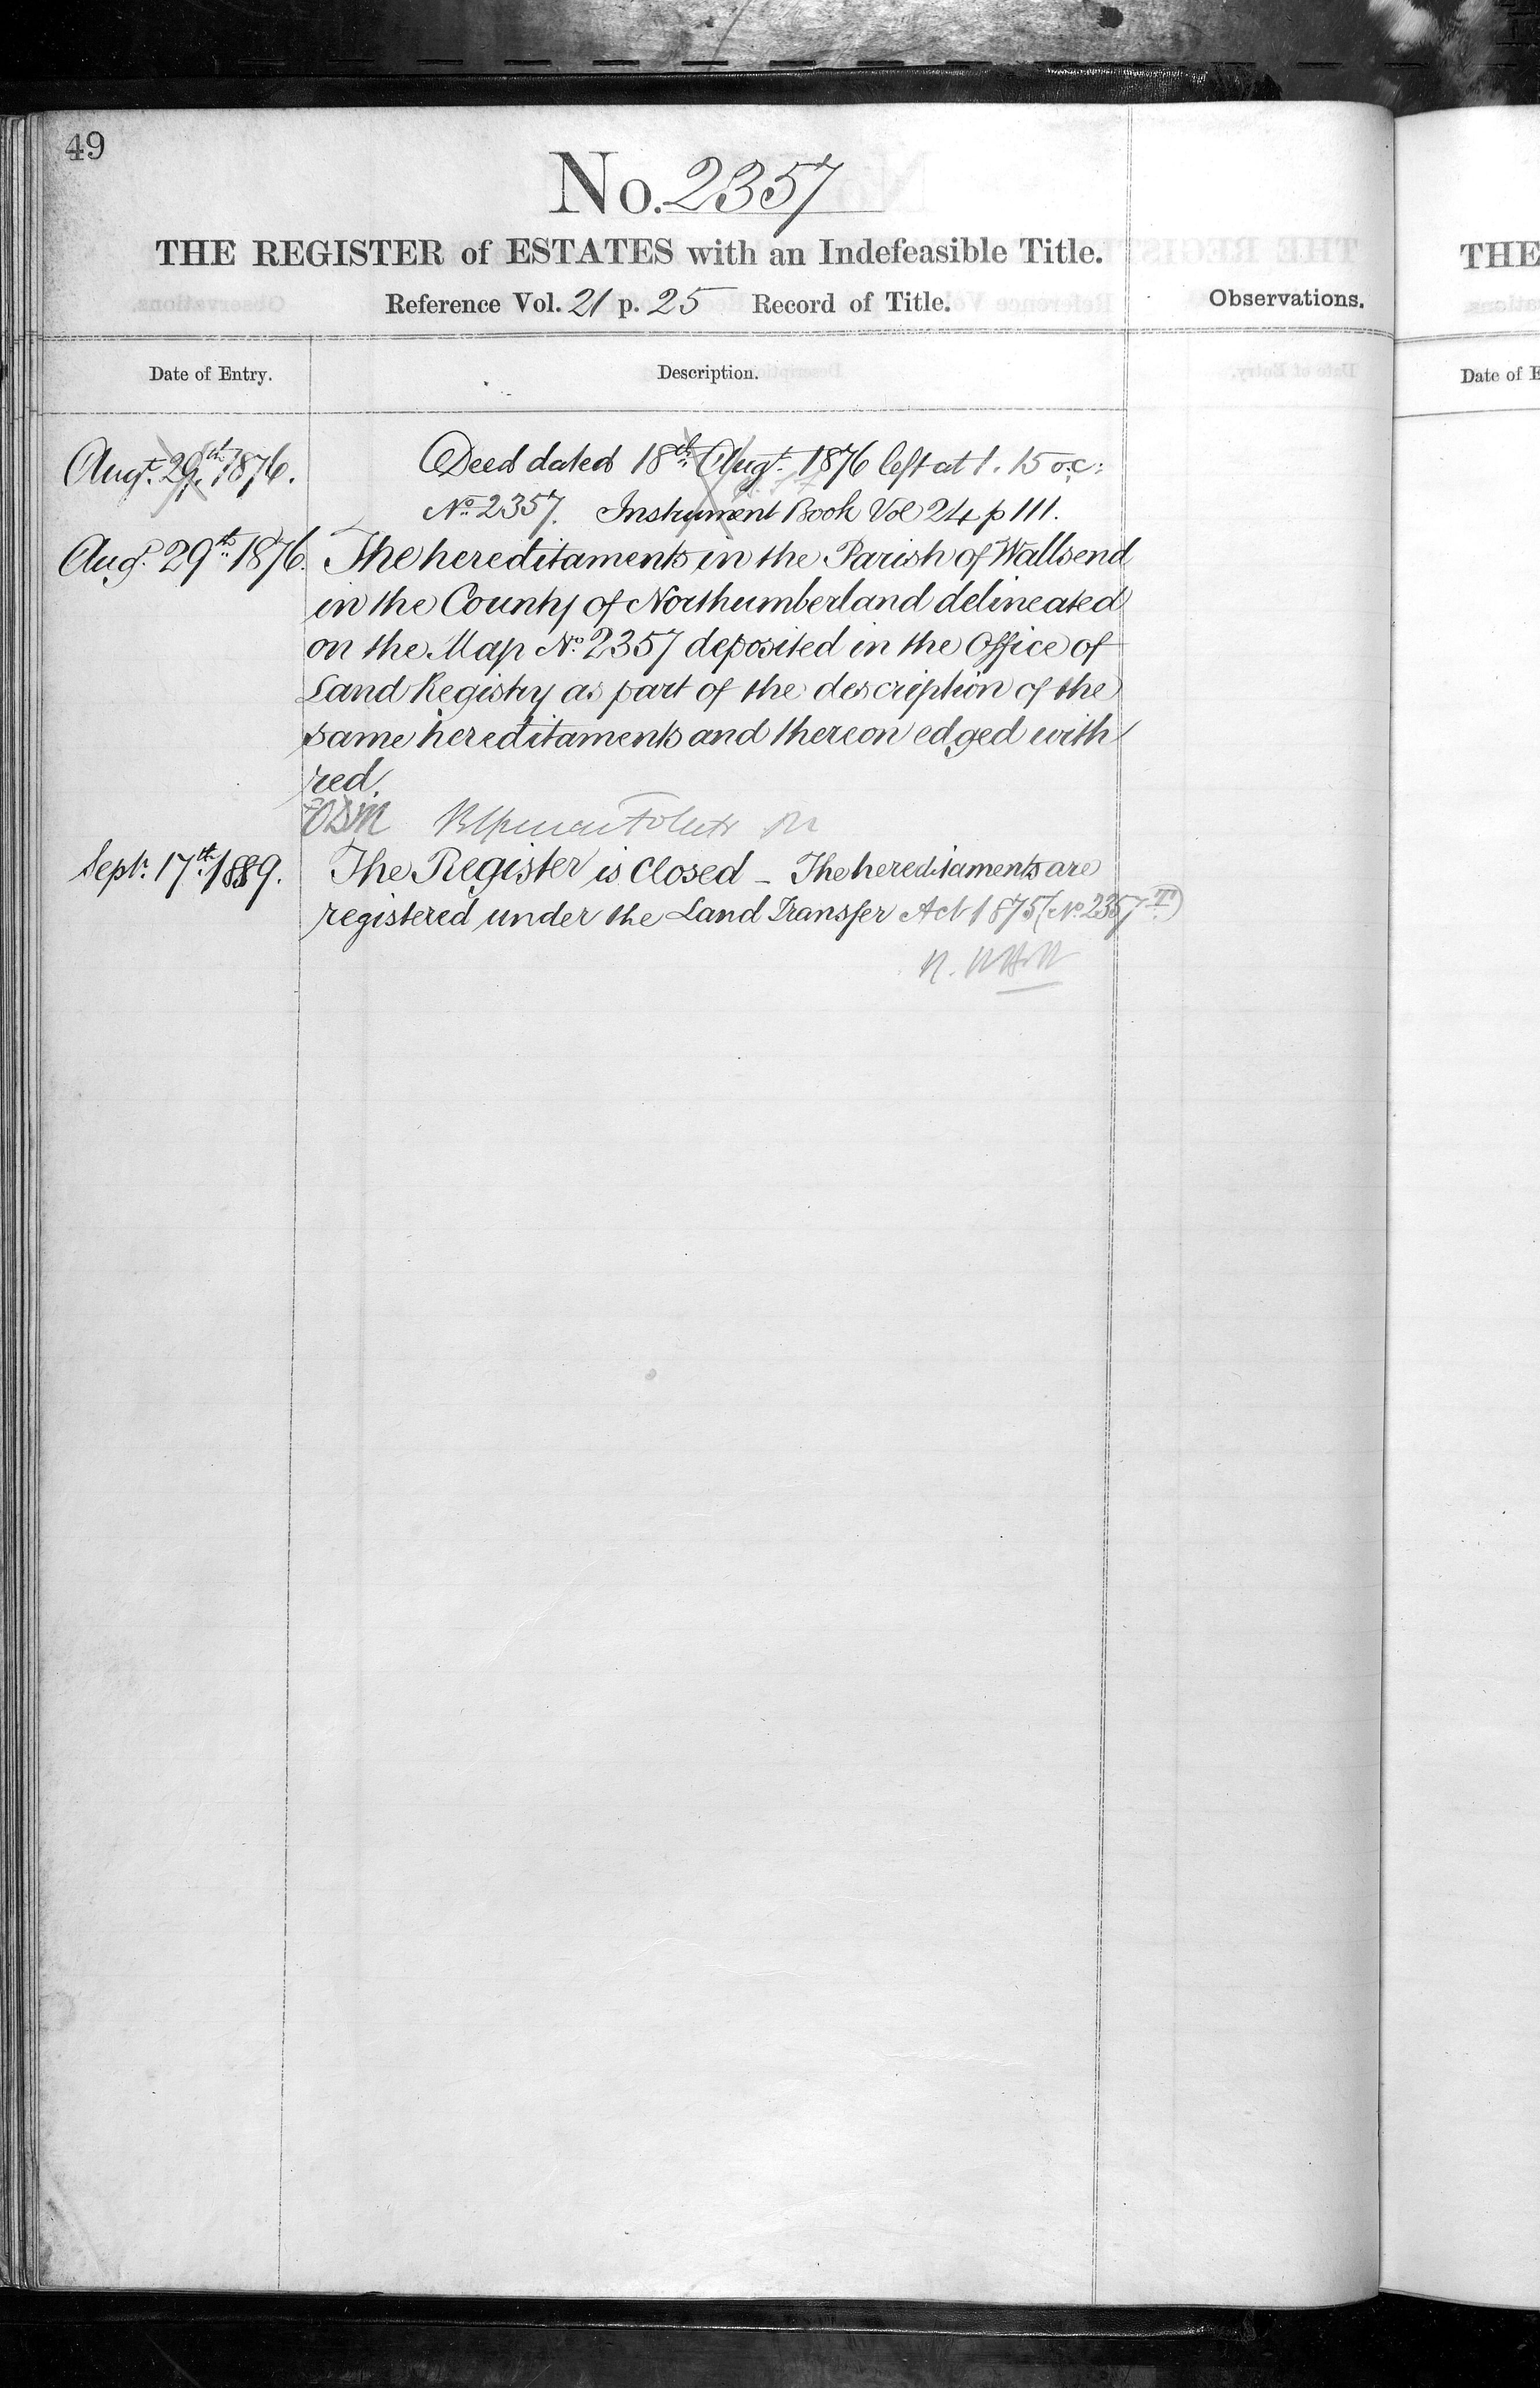 49
No. 2357
THE REGISTER of ESTATES with an Indefeasible Title.
Reference Vol. 21 p. 25 Record of Title.
Observations.
Date of Entry.
Description.
Augt. 29th 1876.
Deed dated 18th Augt. 1876 left at 1. 15 o.c:
No. 2357. Instrument Book Vol 24 p 111.
Augt. 29th 1876.
The hereditaments in the Parish of Wallsend
in the County of Northumberland delineated
on the Map No. 2357 deposited in the Office of
Land Registry as part of the description of the
same hereditaments and thereon edged with
red.
Sept. 17th 1889.
The Register is closed - The hereditaments are
registered under the Land Transfer Act 1875 (No. 2357
THE
Date of E